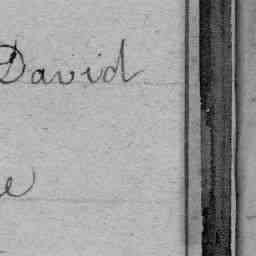 David
e